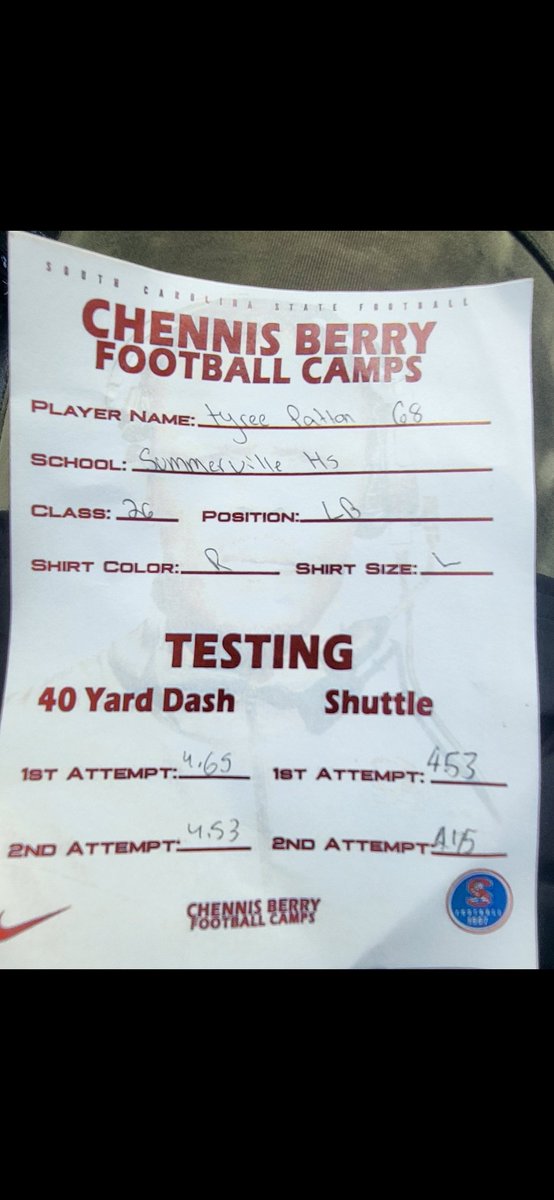 SOUTH CAROLINA STATE FOOTBALL
CHENNIS BERRY
FOOTBALL CAMPS
PLAYER NAME: tyree Patton 68
SCHOOL: Summerville Hs
CLASS: 26 POSITION: LB
SHIRT COLOR: R SHIRT SIZE: L
TESTING
40 Yard Dash Shuttle
1ST ATTEMPT: 4.65 1ST ATTEMPT: 453
2ND ATTEMPT: 4.53 2ND ATTEMPT: 4.15
CHENNIS BERRY
FOOTBALL CAMPS
S